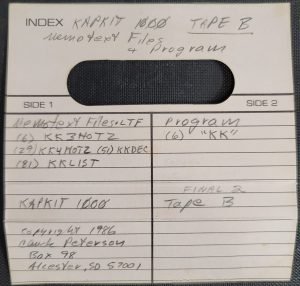 INDEX KAPKIT 1000 TAPE B
Memotext Files
+ Program
SIDE 1
SIDE 2
Memotext Files.LTF
(6) KK3MOTZ
(29) KK4MOTZ (51) KKDEC
(81) KKLIST
KAPKIT 1000
Copyright 1986
Peterson
Box 98
Alcester, SD 57001
Program
(6) "KK"
FINAL 2
Tape B